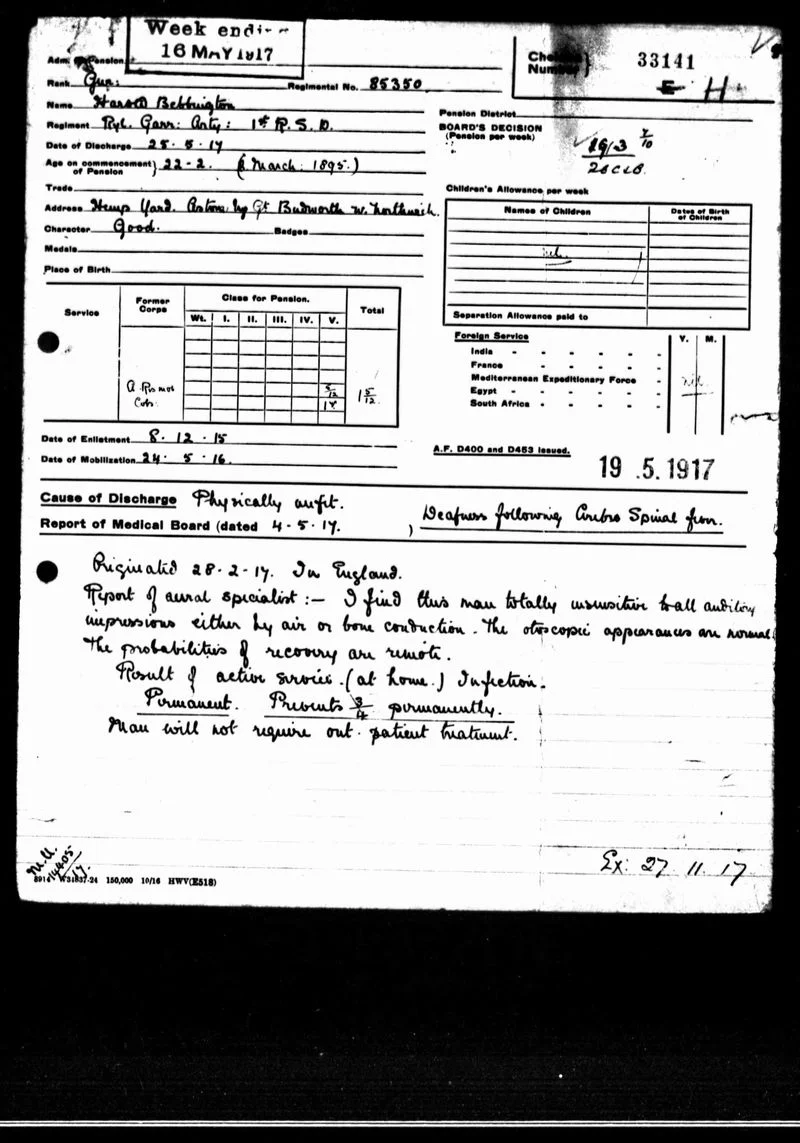 Week ending
16 MAY 1917
Chelsea Number } 33141
E H
Adm. Pension
Rank Gnr: Regimental No. 85350
Name Harold Bebbington
Regiment Ryl. Garr: Arty: 1st R.S.D.
Pension District
BOARD'S DECISION
(Pension per week)
Date of Discharge 25.5.17
Age on commencement of Pension } 22-2. ( March: 1895.)
Trade
Children's Allowance per week
Address Hemp Yard. Aston by Gt Budworth Nr. Northwich.
Names of Children
Dates of Birth of Children
Character Good. Badges
Medals
nil.
Place of Birth
Separation Allowance paid to
Service
Former Corps
Class for Pension.
Total
Wt. I. II. III. IV. V.
Foreign Service
Y. M.
India
France
Mediterranean Expeditionary Force
nil
Egypt
South Africa
5/12
1 5/12
Date of Enlistment 8.12.15
Date of Mobilization 24.5.16.
A.F. D400 and D453 issued.
19.5.1917
Cause of Discharge Physically unfit.
Report of Medical Board (dated 4.5.17. ) Deafness following Cerebro Spinal fever.
Originated 28.2.17. In England.
Report of aural specialist:— I find this man totally insensitive to all auditory
impressions either by air or bone conduction. The otoscopic appearances are normal
The probabilities of recovery are remote.
Result of active service. (at home.) Infection.
Permanent. Prevents 3/4 permanently.
Man will not require out.patient treatment.
Ex: 27 11. 17
150,000 10/16 HWV(E518)